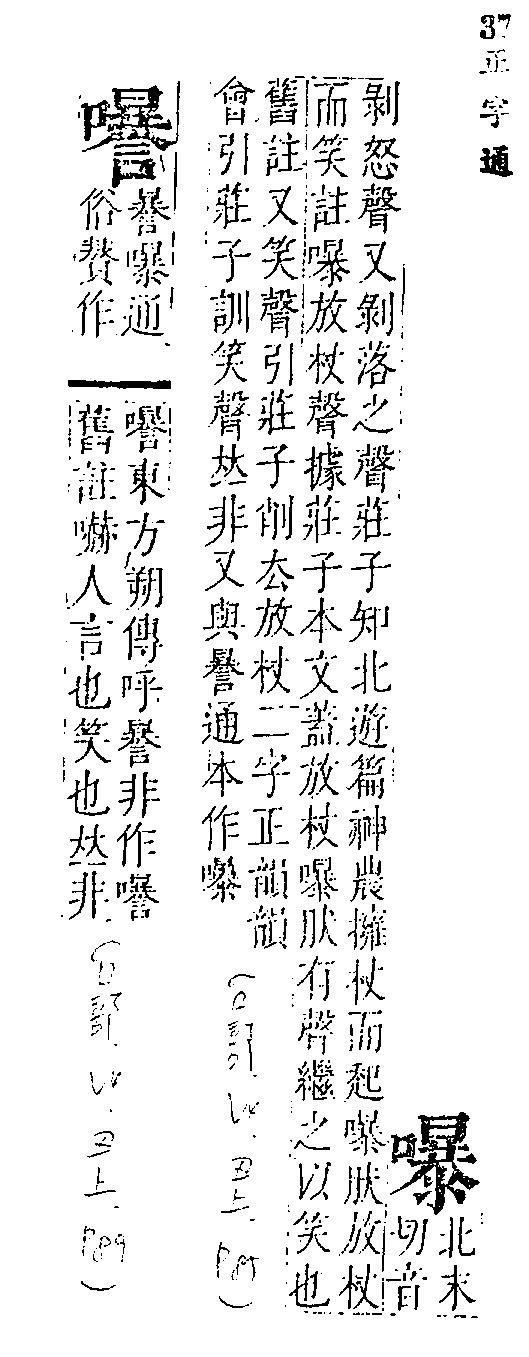 37正字通
嚗北末
切音
剝怒聲又剝落之聲莊子知北遊篇神農擁杖而起嚗肰放杖
而笑註嚗放杖聲據莊子本文蓋放杖嚗肰有聲繼之以笑也
舊註又笑聲引莊子削厺放杖二字正韻韻
會引莊子訓笑聲𠀤非又與譽通本作嚗
譽嚗通
俗贊作
嚗東方朔傳呼譽非作嚗
舊註嚇人言也笑也𠀤非
丑上
P85
丑上
P89